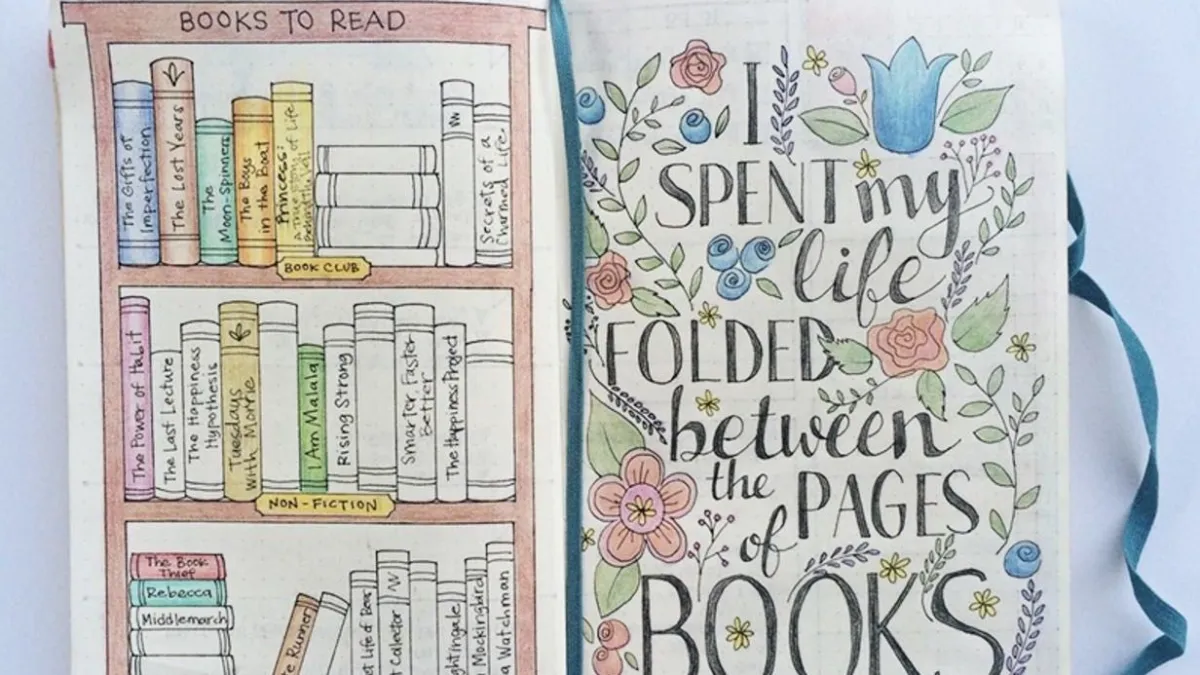 BOOKS TO READ
The Gifts of
Imperfection
The Lost Years
The
Moon-Spinners
The Boys
in the Boat
Princess:
A True Story of Life
Secrets of a
Charmed Life
BOOK CLUB
The Power of Habit
The Last Lecture
The Happiness
Hypothesis
Tuesdays
with Morrie
I Am Malala
Rising Strong
Smarter Faster
Better
The Happiness Project
NON-FICTION
The Book
Thief
Rebecca
Middlemarch
e Runner
et Life of Bees
t Collector
ghtingale
Mockingbird
a Watchman
I
SPENT my
life
FOLDED
between
the PAGES
of
BOOKS